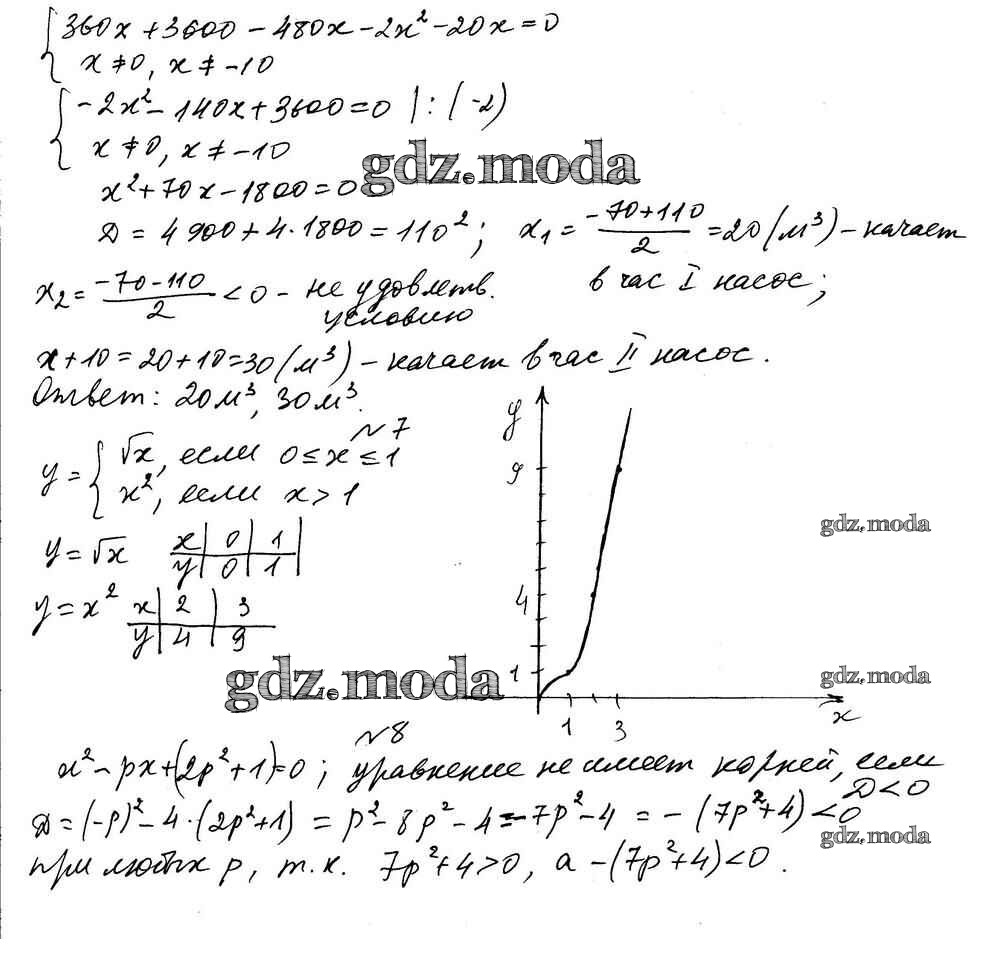 { 360x + 3600 - 480x - 2x² - 20x = 0
x ≠ 0, x ≠ -10
{ -2x² - 140x + 3600 = 0 | : (-2)
x ≠ 0, x ≠ -10
gdz.moda
x² + 70x - 1800 = 0
Д = 4900 + 4·1800 = 110²; x₁ = (-70+110)/2 = 20 (м³) - качает
в час I насос;
x₂ = (-70-110)/2 < 0 - не удовлетв.
условию
x + 10 = 20 + 10 = 30 (м³) - качает в час II насос.
Ответ: 20м³, 30м³.
N7
y = { √x, если 0 ≤ x ≤ 1
x², если x > 1
y = √x x | 0 | 1 |
y | 0 | 1 |
y = x² x | 2 | 3
y | 4 | 9
y
9
4
1
1 3 x
gdz.moda
gdz.moda
gdz.moda
N8
x² - px + (2p² + 1) = 0; уравнение не имеет корней, если
Д < 0
Д = (-p)² - 4·(2p² + 1) = p² - 8p² - 4 = -7p² - 4 = -(7p² + 4) < 0
gdz.moda
при любых p, т.к. 7p² + 4 > 0, а -(7p² + 4) < 0.